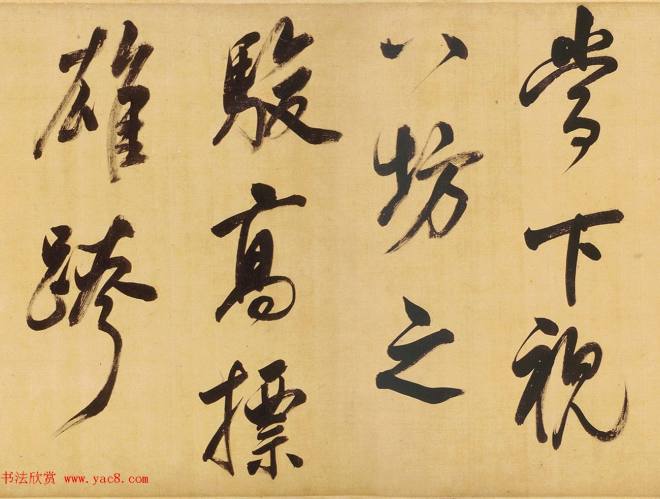 常下視
八坊之
駿高摽
雄跨
书法欣赏 www.yac8.com